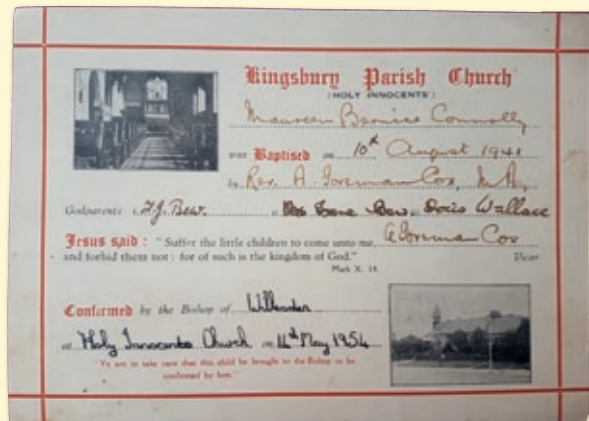 Kingsbury Parish Church
(HOLY INNOCENTS')
Maureen Bernice Connolly
was Baptised on 10th August 1941
by Rev. A. Foreman Cox, M.A.,
Godparents: F.J. Bew. Bew Doris Wallace
Jesus said: "Suffer the little children to come unto me, A Foreman Cox
and forbid them not: for of such is the kingdom of God." Vicar
Mark X. 14.
Confirmed by the Bishop of Willesden
at Holy Innocents Church on 14th May 1954
"Ye are to take care that this child be brought to the Bishop to be
confirmed by him."